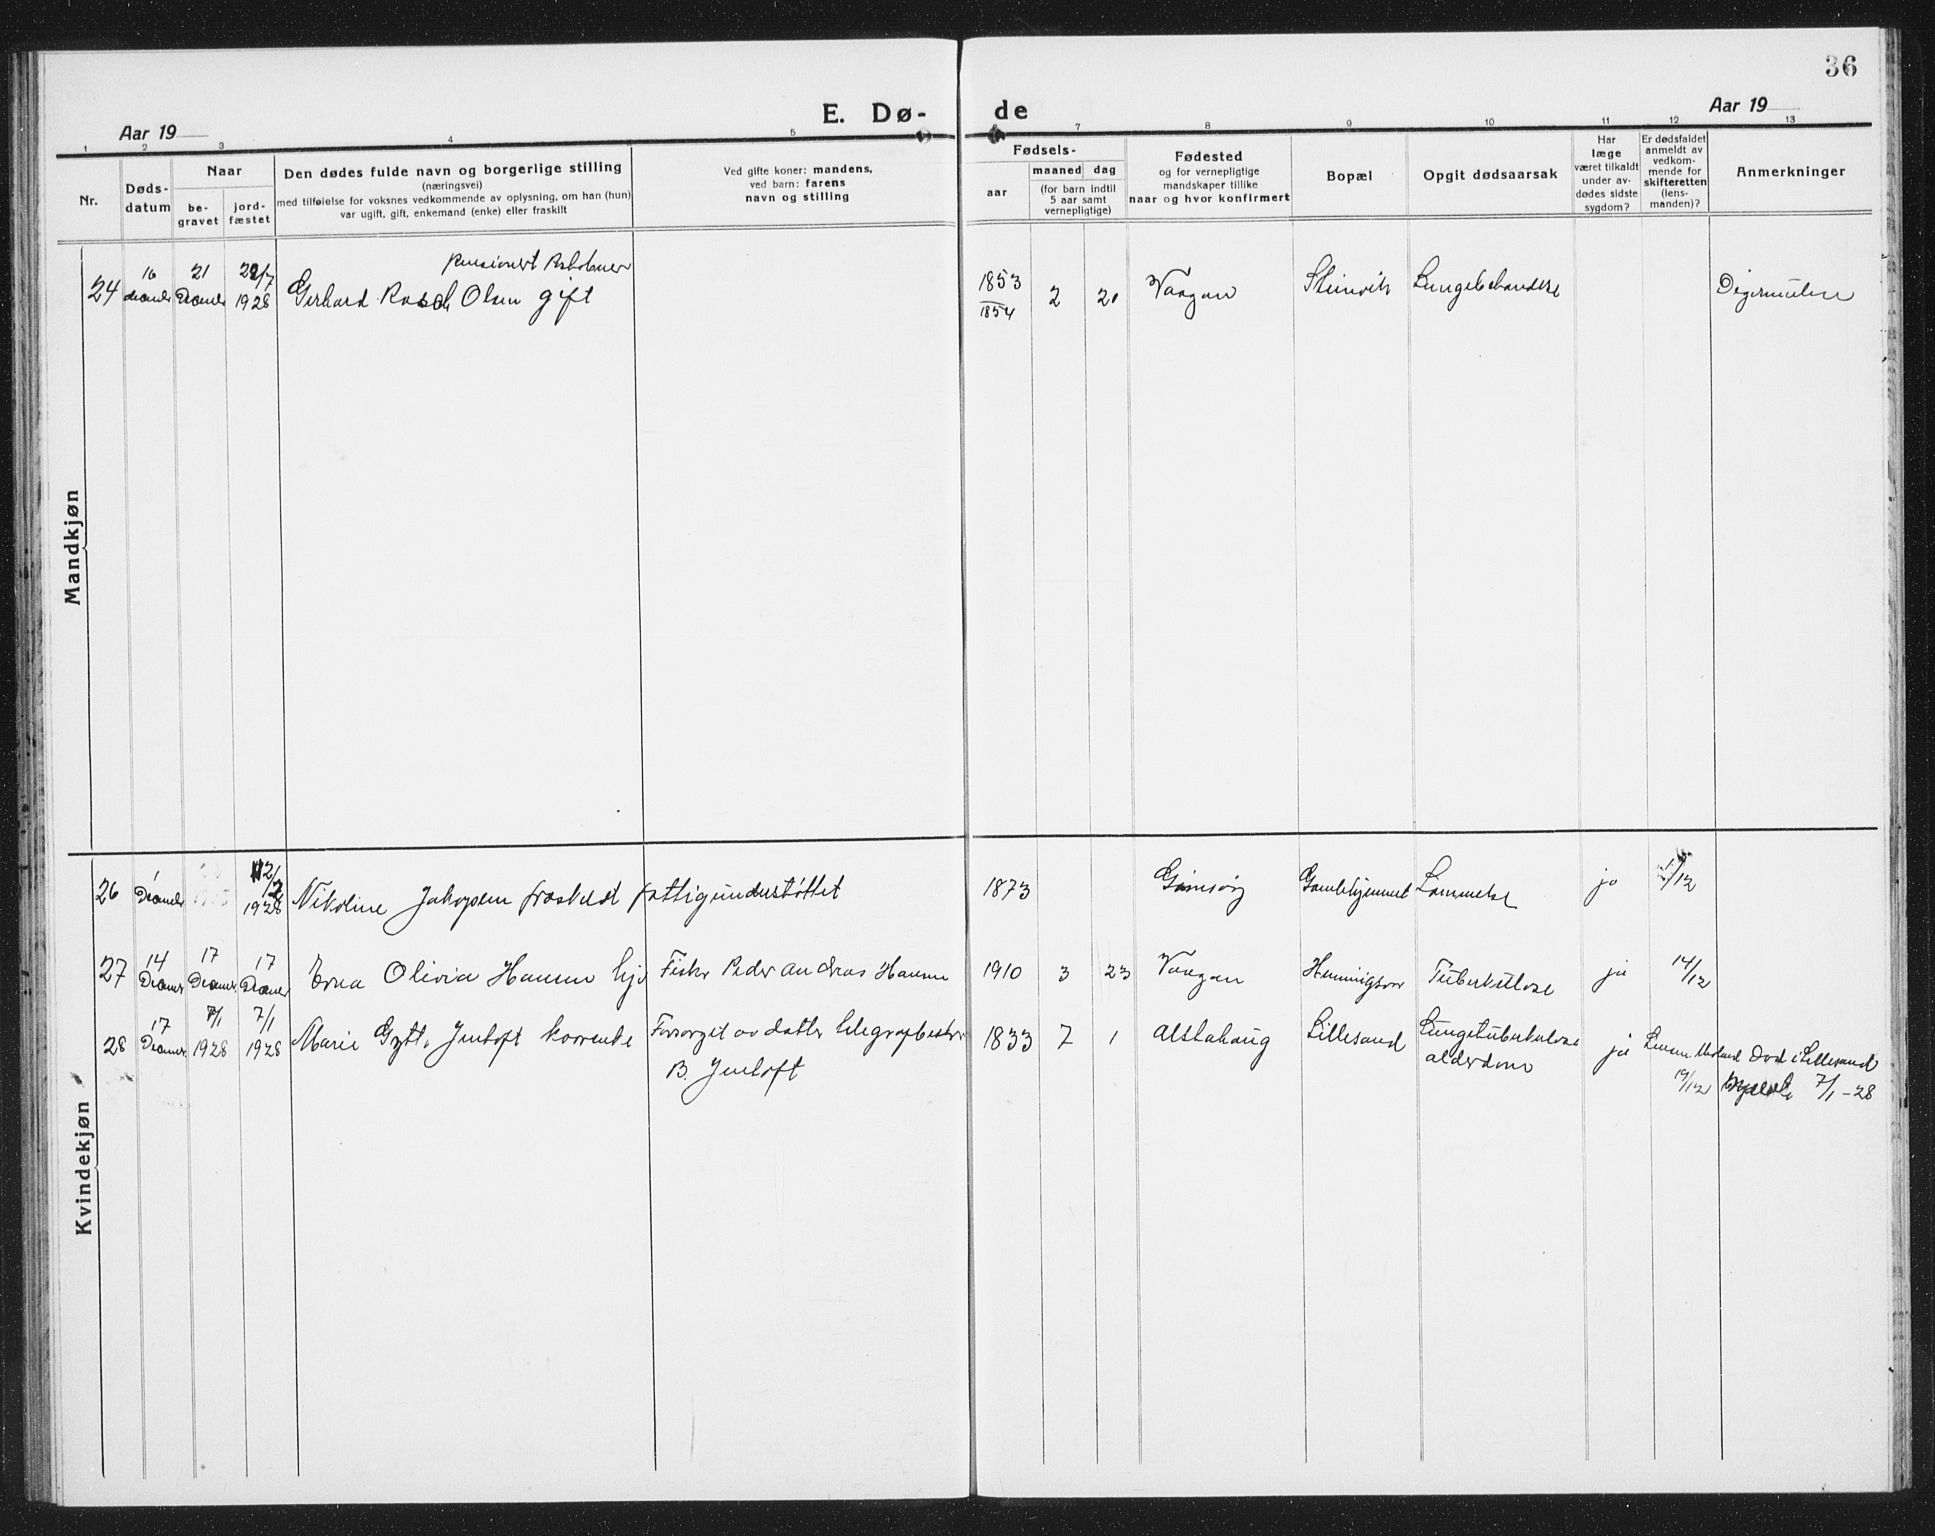 36
E. Dø- de
Aar 19 Aar 19
1 2 3 4 5 7 8 9 10 11 12 13
Nr.
Døds-
datum
Naar
be-
gravet
jord-
fæstet
Den dødes fulde navn og borgerlige stilling
(næringsvei)
med tilføielse for voksnes vedkommende av oplysning, om han (hun)
var ugift, gift, enkemand (enke) eller fraskilt
Ved gifte koner: mandens,
ved barn: farens
navn og stilling
Fødsels-
aar
maaned dag
(for barn indtil
5 aar samt
vernepligtige)
Fødested
og for vernepligtige
mandskaper tillike
naar og hvor konfirmert
Bopæl
Opgit dødsaarsak
Har
læge
været tilkaldt
under av-
dødes sidste
sygdom?
Er dødsfaldet
anmeldt av
vedkom-
mende for
skifteretten
(lens-
manden)?
Anmerkninger
Mandkjøn
16 21 22/7 pensionert
24 1928 Gerhard Rasch Olsen gift 1853 2 20 Vaagan Steinvik Digermulen
1854
Kvindekjøn
12/12
26 1 1928 Nikoline Jakopsen fraskildt fattigunderstøttet 1873 Gimsøy Gamlehjemmet ja 1/12
14 17 17
27 Erna Olivia Hansen Fisker Peder Andreas Hansen 1910 3 23 Vaagan Henningsvær Tuberkulose ja 14/12
17 7/1 7/1
28 1928 1928 Marie Jentoft Forsørget av datter telegrafbestyr 1833 7 1 Alstahaug Lillesand Lungetuberkulose ja Død i Lillesand
B. Jentoft alderdom 19/12 7/1-28